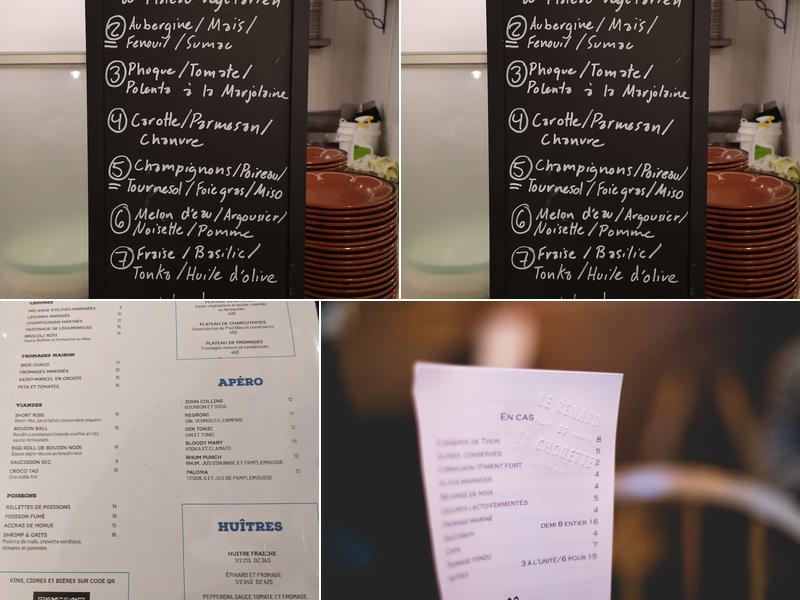 ② Aubergine / Maïs /
Fenouil / Sumac
③ Phoque / Tomate /
Polenta à la Marjolaine
④ Carotte / Parmesan /
Chanvre
⑤ Champignons / Poireau /
Tournesol / Foie gras / Miso
⑥ Melon d'eau / Argousier /
Noisette / Pomme
⑦ Fraise / Basilic /
Tonka / Huile d'olive
② Aubergine / Maïs /
Fenouil / Sumac
③ Phoque / Tomate /
Polenta à la Marjolaine
④ Carotte / Parmesan /
Chanvre
⑤ Champignons / Poireau /
Tournesol / Foie gras / Miso
⑥ Melon d'eau / Argousier /
Noisette / Pomme
⑦ Fraise / Basilic /
Tonka / Huile d'olive
LÉGUMES
MÉLANGE D'OLIVES MARINÉES
LÉGUMES MARINÉS
CHAMPIGNONS MARINÉS
TARTINADE DE LÉGUMINEUSE
BROCOLI RÔTI
FROMAGES MAISON
BRIE CHAUD
FROMAGES MARINÉS
SAINT-MARCEL EN CROÛTE
FETA ET TOMATES
VIANDES
SHORT RIBS
BOUDIN BALL
sauce remoulade
EGG ROLL DE BOUDIN NOIR
Sauce aigre-douce au boudin noir
SAUCISSON SEC
CROCO TAO
Crocodile frit
POISSONS
RILLETTES DE POISSONS 14
POISSON FUMÉ 16
ACCRAS DE MORUE 15
SHRIMP & GRITS 18
Polenta de maïs, crevette nordique,
tomates et poivrons
VINS, CIDRES ET BIÈRES SUR CODE QR
PLATEAU DE CHARCUTERIES
Charcuteries du Pied Bleu et condiments
PLATEAU DE FROMAGES
Fromages maison et condiments
APÉRO
JOHN COLLINS 12
BOURBON ET SODA
NEGRONI 14
GIN, VERMOUTH, CAMPARI
GIN TONIC 12
GIN ET TONIC
BLOODY MARY 14
VODKA ET CLAMATO
RHUM PUNCH 12
RHUM, JUS D'ORANGE ET PAMPLEMOUSSE
PALOMA 12
TEQUILA ET JUS DE PAMPLEMOUSSE
HUÎTRES
HUITRE FRAICHE
1/2 21$ DZ 36$
ÉPINARD ET FROMAGE
1/2 24$ DZ 42$
PEPPERONI, SAUCE TOMATE ET FROMAGE
LE RENARD
ET
LA CHOUETTE
EN CAS
CONSERVE DE THON 8
AUTRES CONSERVES 5
CORNICHON/PIMENT FORT 2
OLIVES MARINÉES 4
MÉLANGE DE NOIX 4
LÉGUMES LACTO-FERMENTÉS 5
FROMAGE MARINÉ 4
DEMI 8 ENTIER 16
SAUCISSON
4
7
FROMAGE FONDU
3 À L'UNITÉ/6 POUR 15